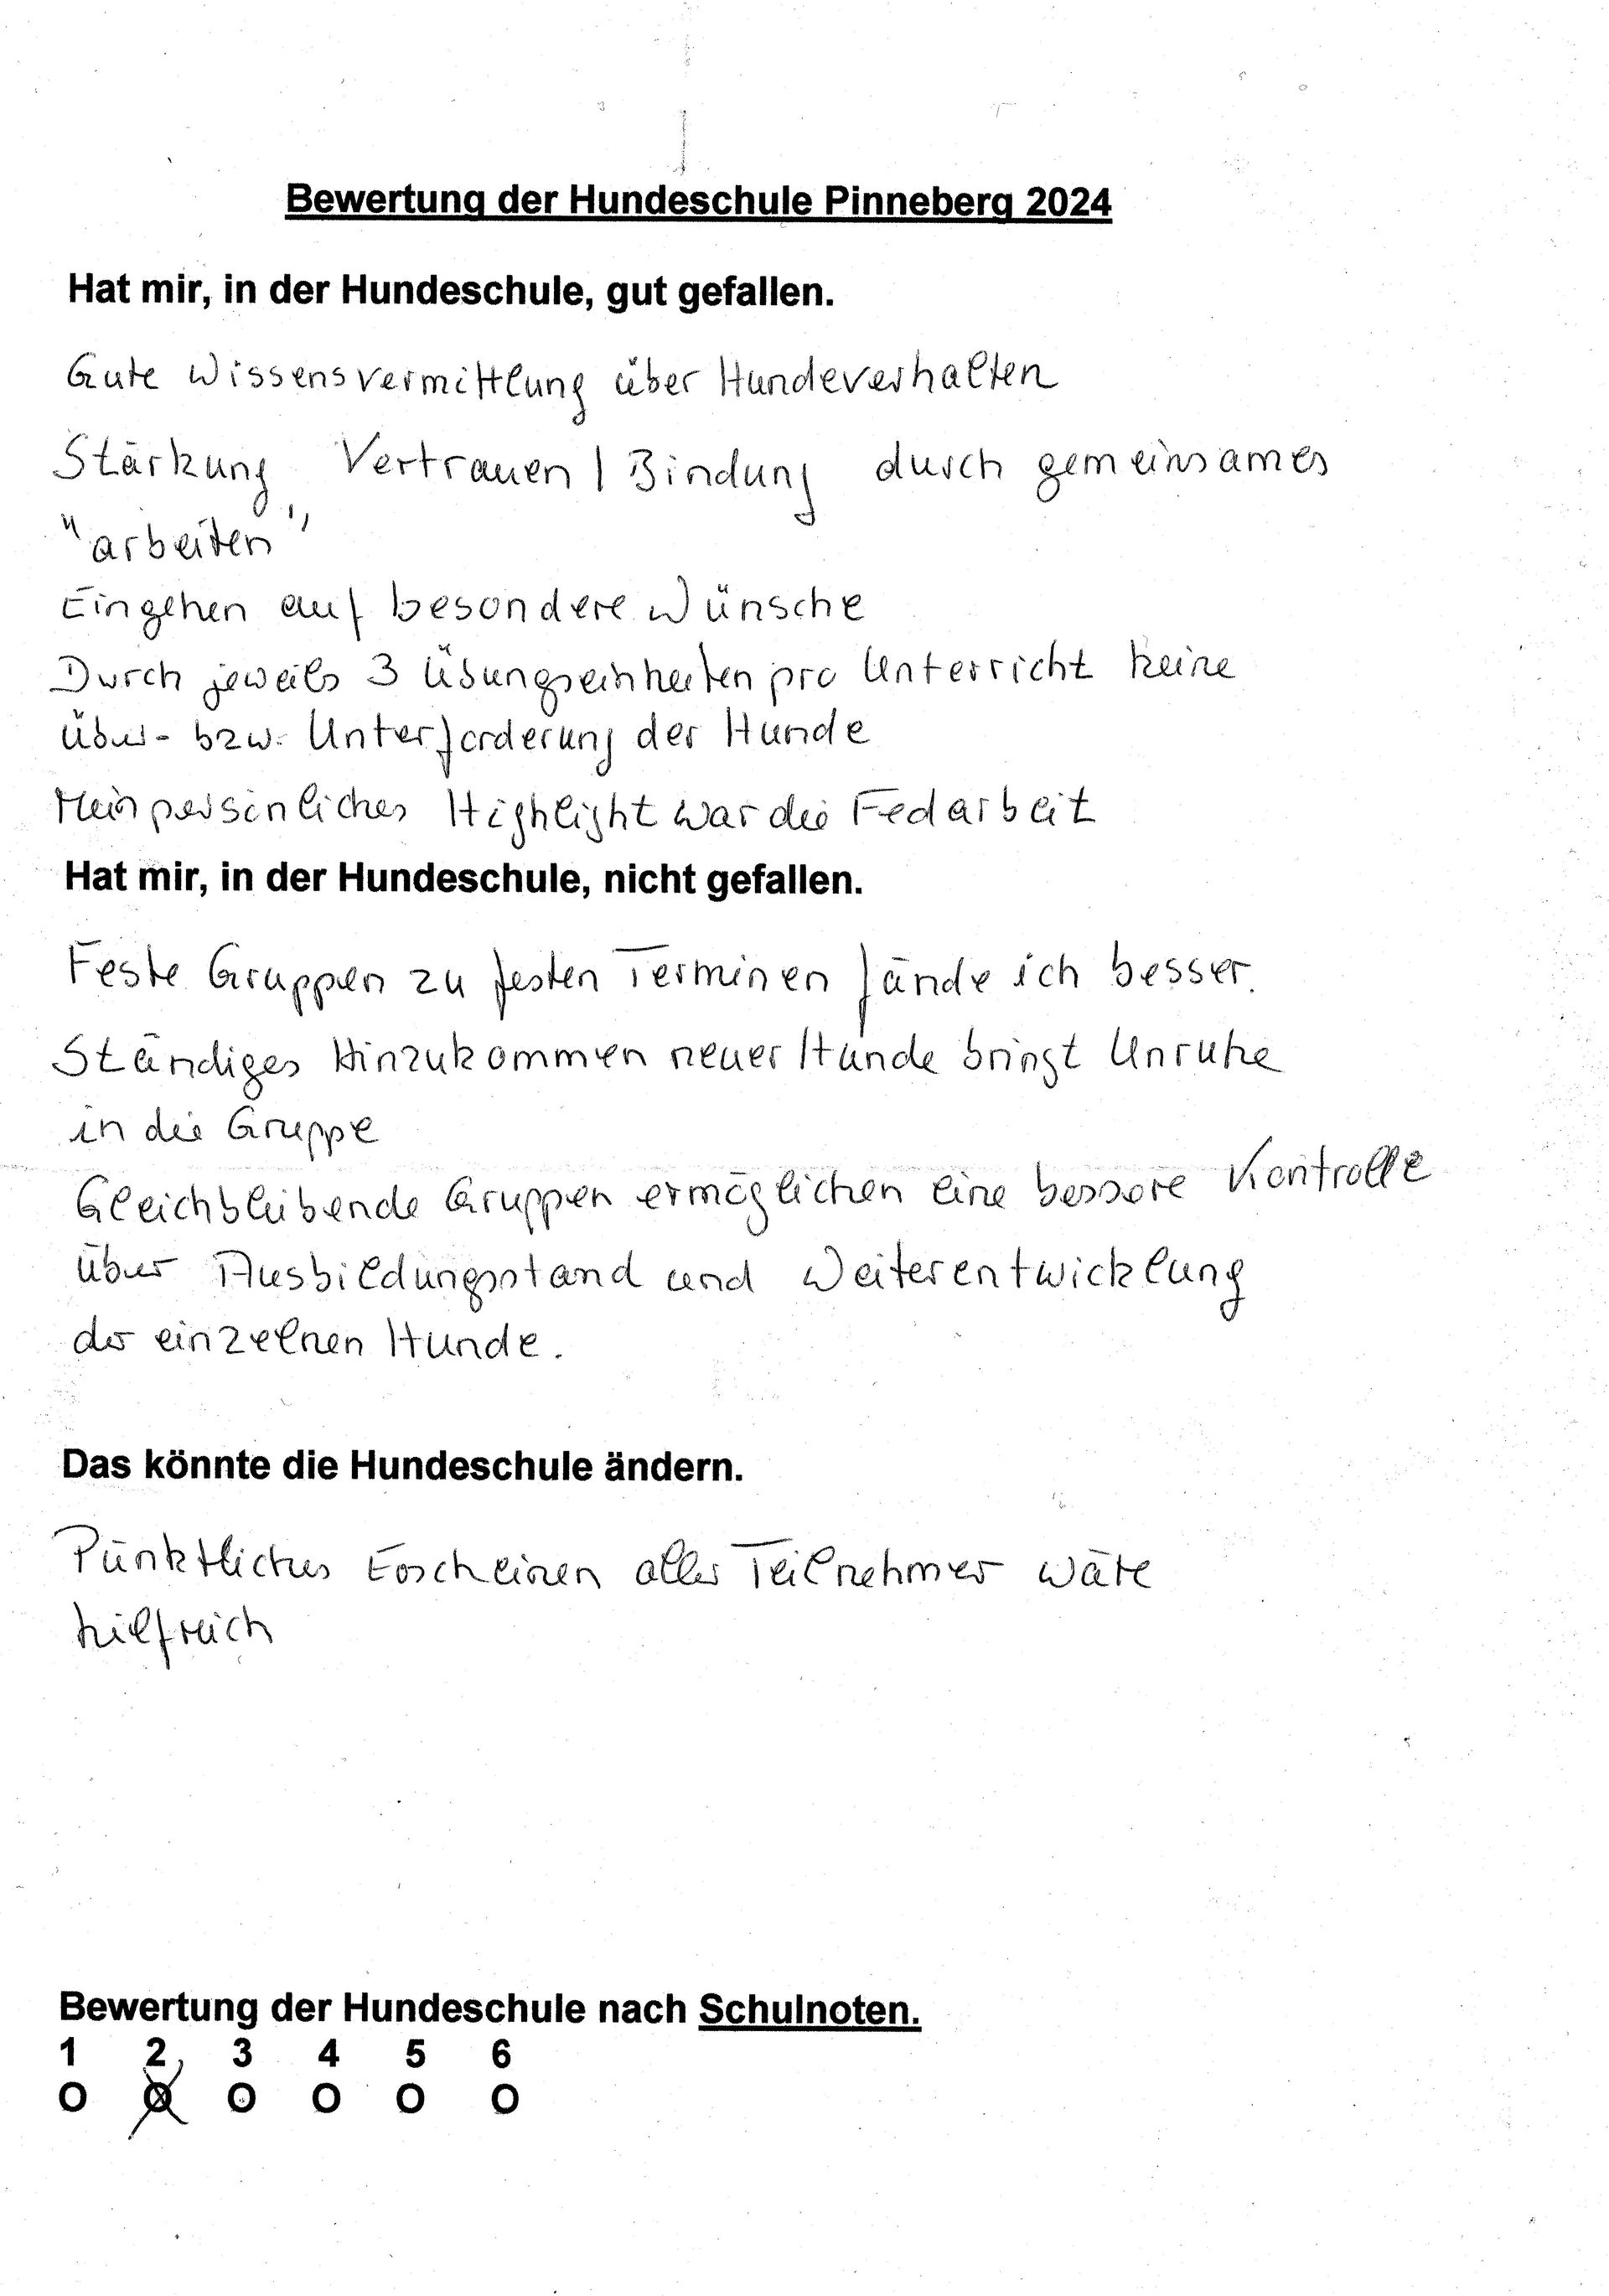 Bewertung der Hundeschule Pinneberg 2024
Hat mir, in der Hundeschule, gut gefallen.
Gute Wissensvermittlung über Hundeverhalten
Stärkung Vertrauen / Bindung durch gemeinsames
"arbeiten"
Eingehen auf besondere Wünsche
Durch jeweils 3 Übungseinheiten pro Unterricht keine
Über- bzw. Unterforderung der Hunde
Mein persönliches Highlight war die Fedarbeit
Hat mir, in der Hundeschule, nicht gefallen.
Feste Gruppen zu festen Terminen fände ich besser.
Ständiges Hinzukommen neuer Hunde bringt Unruhe
in die Gruppe
Gleichbleibende Gruppen ermöglichen eine bessere Kontrolle
über Ausbildungsstand und Weiterentwicklung
der einzelnen Hunde.
Das könnte die Hundeschule ändern.
Pünktliches Erscheinen aller Teilnehmer wäre
hilfreich
Bewertung der Hundeschule nach Schulnoten.
1 2 3 4 5 6
O O O O O O